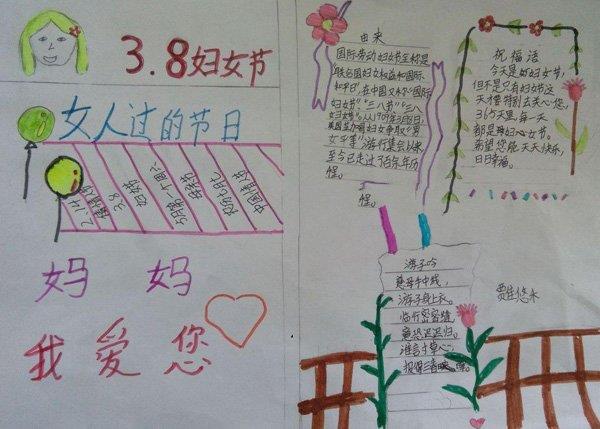 3.8妇女节
女人过的节日
2.14
情人节
3.8
妇女节
5月第二个周六
母亲节
农历七月七
中国情人节
妈 妈
我 爱 您
由来
国际劳动妇女节全称是
联合国妇女权益和国际
和平日,在中国又称“国际
妇女节”“三八节”“三八
妇女节。从1909年3月8日,
美国芝加哥妇女争取“男
女平等”游行集会以来,
至今已走过了百余年历
程。
祝福语
今天是妇女节,
但不是只有妇女节这
天才特别去关心您,
365天里,每一天
都是
希望您能天天快乐,
日日幸福。
游子吟
慈母手中线,
游子身上衣。
临行密密缝,
意恐迟迟归。
谁言寸草心,
报得三春晖。